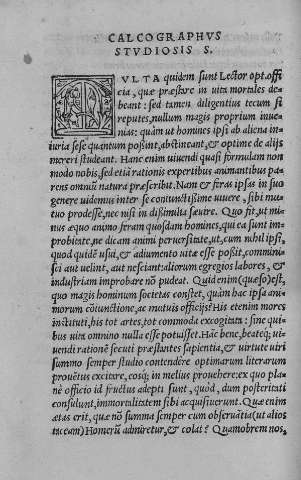 CALCOGRAPHVS
STVDIOSIS S.
MVLTA quidem sunt Lector opt. offi
cia, quæ præstere in uita mortales de-
beant: sed tamen diligentius tecum si
reputes, nullum magis proprium inue-
nias: quàm ut homines ipsi ab aliena in-
iuria sese quantum possint, abstineant, & optime de alijs
mereri studeant. Hanc enim uiuendi quasi formulam non
modo nobis, sed etiã rationis expertibus animantibus pa-
rens omniũ natura præscribit. Nam & feras ipsas in suo
genere uidemus inter se coniunctissime uiuere, sibi mu-
tuo prodesse, nec nisi in dissimilia sæuire. Quo fit, ut mi-
nus æquo animo feram quosdam homines, qui ea sunt im-
probitate, ne dicam animi peruersitate, ut, cum nihil ipsi,
quod quidẽ usui, & adiumento uitæ esse possit, commini-
sci aut uelint, aut nesciant: aliorum egregios labores, &
industriam improbare nõ pudeat. Quid enim (quæso) est,
quo magis hominum societas constet, quàm hac ipsa ani-
morum cõiunctione, ac mutuis officijs? His etenim mores
instituti, his tot artes, tot commoda excogitata: sine qui-
bus uita omnino nulla esse potuisset. Hãc bene, beateq́; ui-
uendi rationẽ secuti præstantes sapientia, & uirtute uiri
summo semper studio contendere optimarum literarum
prouẽtus excitare, eosq́; in melius prouehere: ex quo pla-
nè officio id fructus adepti sunt, quòd, dum posteritati
consulunt, immortalitatem sibi acquisiuerunt. Quæ enim
ætas erit, quæ nõ summa semper cum obseruãtia (ut alios
taceam) Homerũ admiretur, & colat? Quamobrem nos,